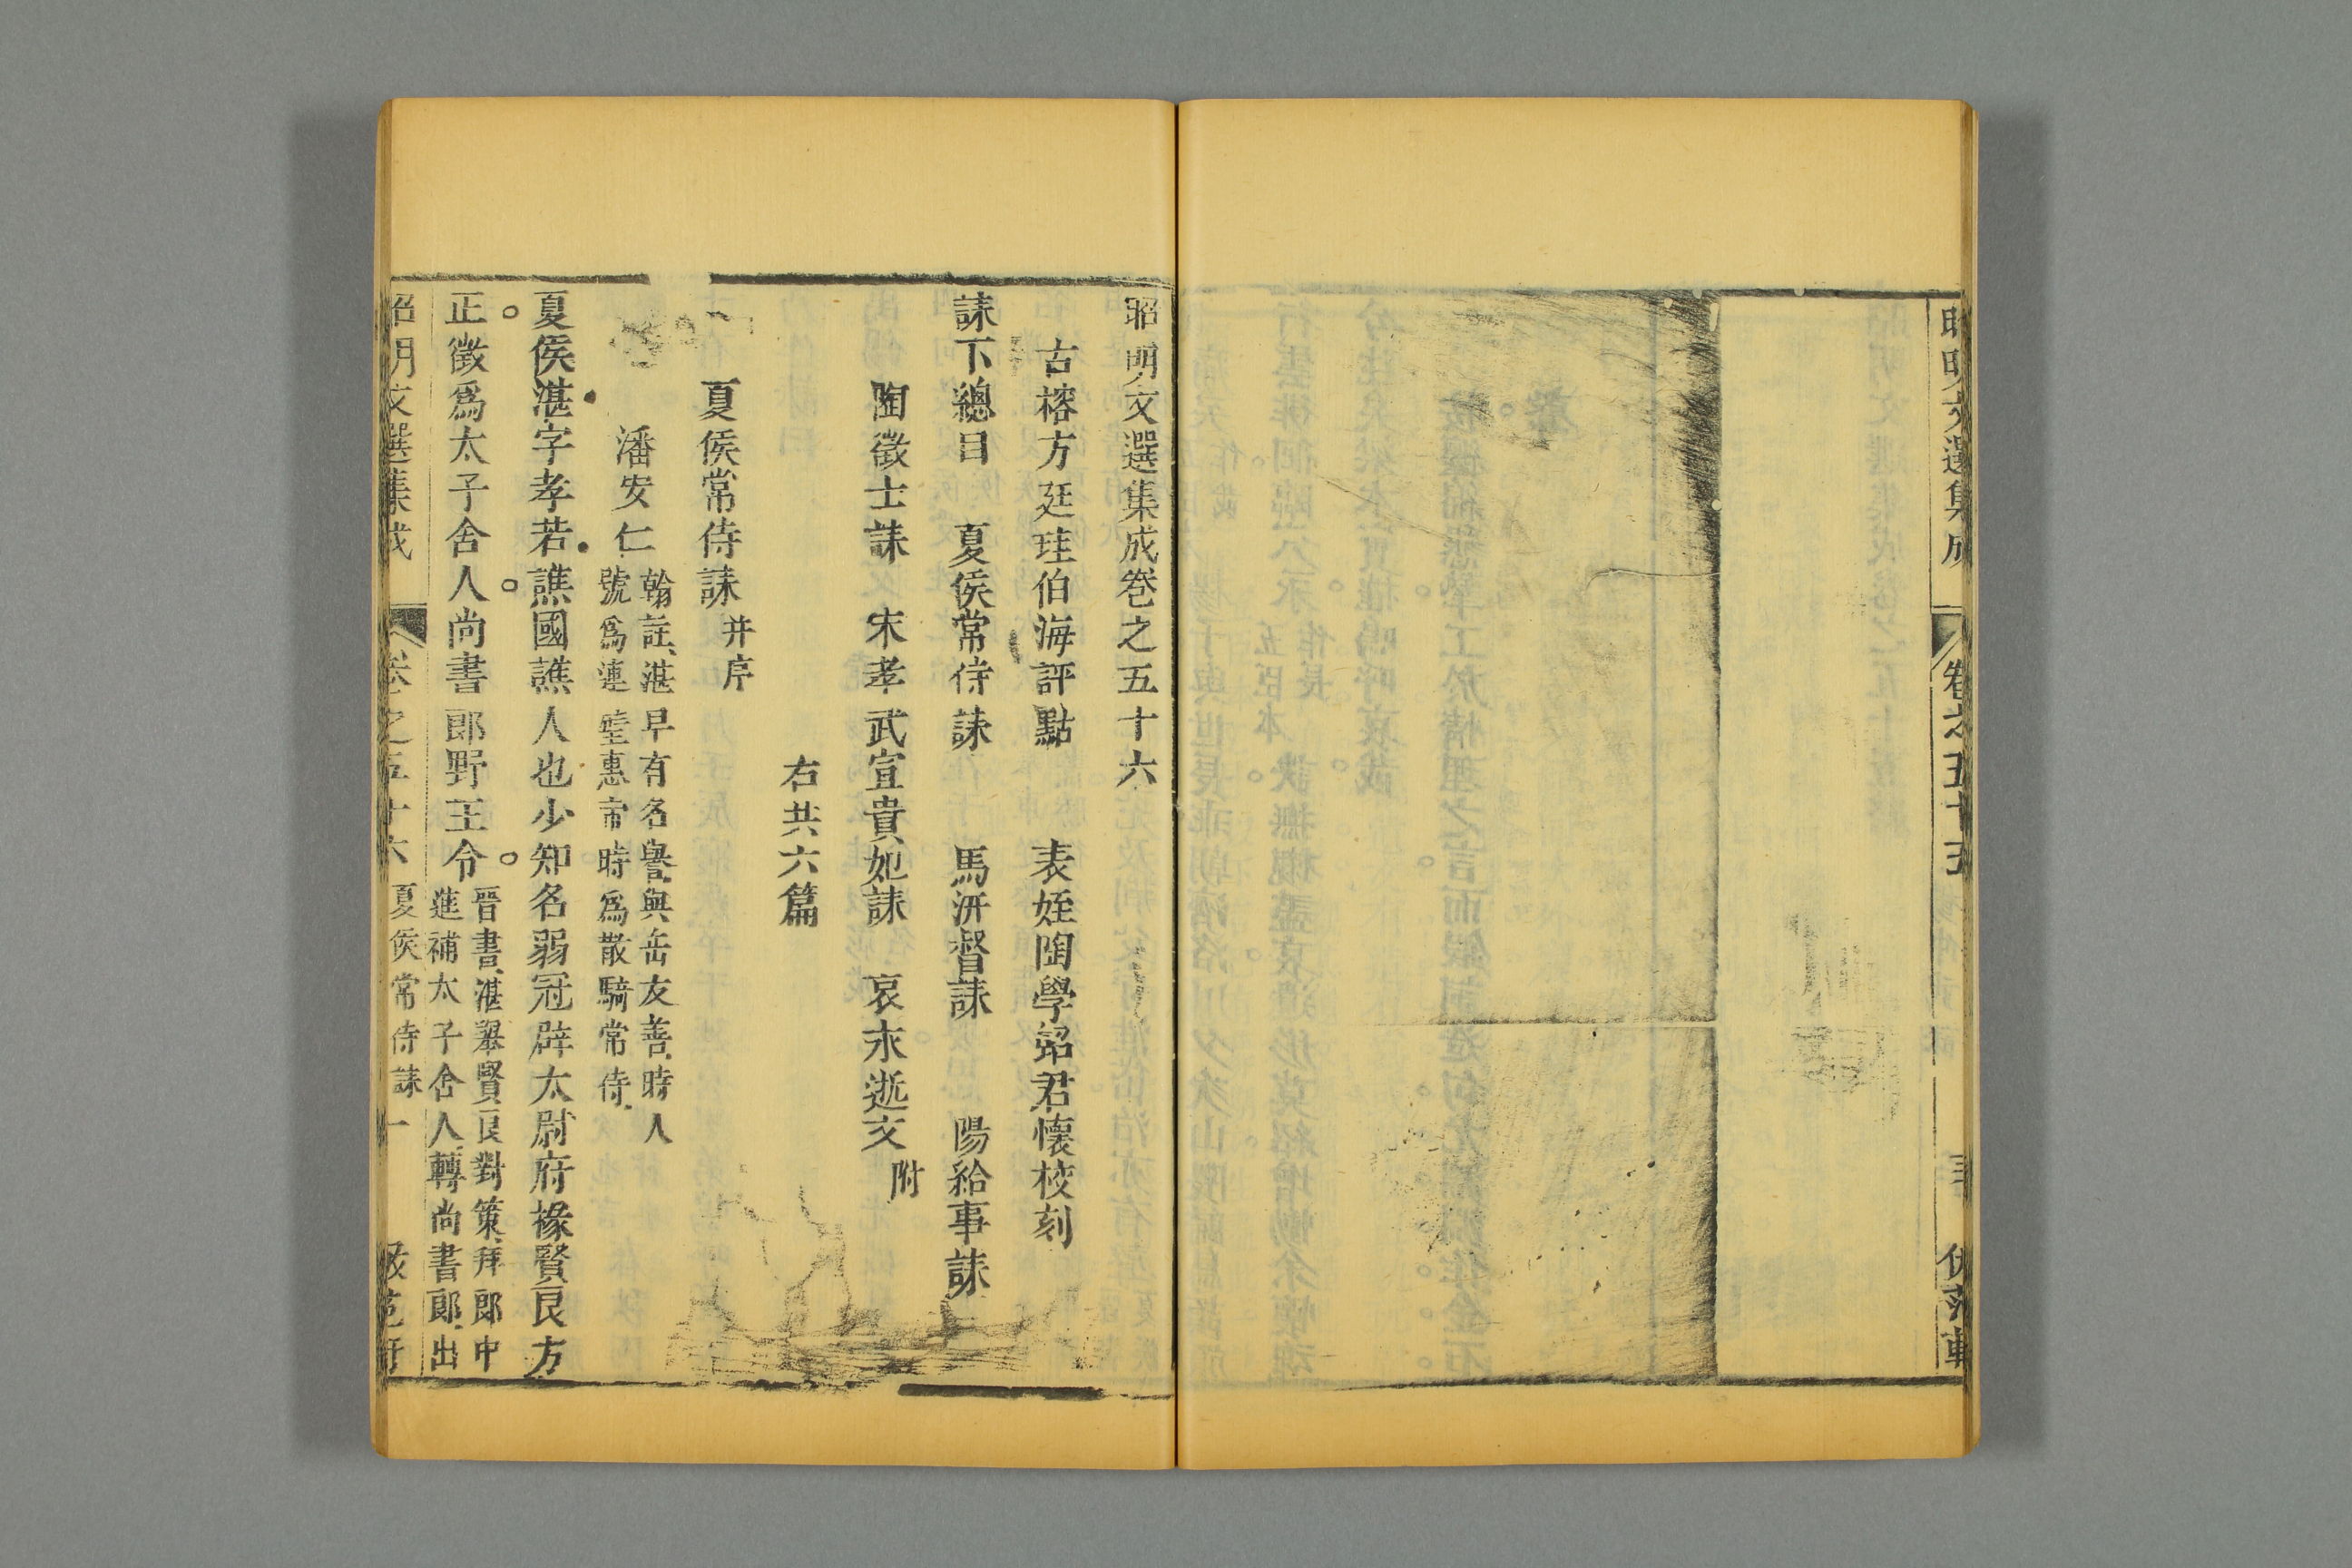 昭明文選集成
卷之五十五
昭明文選集成卷之五十六
古榕方廷珪伯海評點　表姪陶學弨君懷校刻
誄下總目　夏侯常侍誄　馬汧督誄　陽給事誄
陶徵士誄　宋孝武宣貴妃誄　哀永逝文附
右共六篇
夏侯常侍誄并序
潘安仁翰註湛早有名譽與岳友善時人
號爲連璧惠帝時爲散騎常侍
夏侯湛字孝若譙國譙人也少知名弱冠辟太尉府掾賢良方
正徵爲太子舍人尚書郎野王令晉書湛舉賢良對策拜郎中
進補太子舍人轉尚書郎出
昭明文選集成　卷之五十六　夏侯常侍誄　一